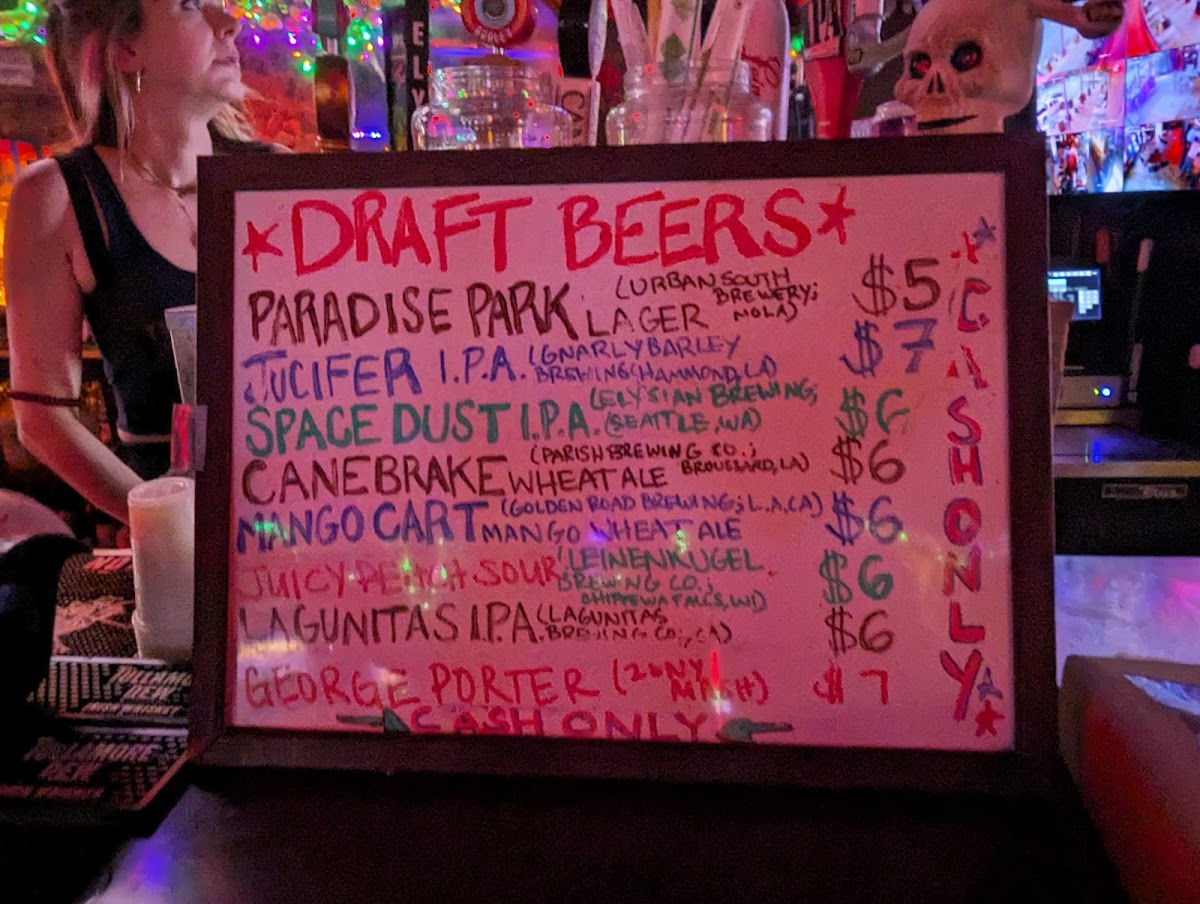 ELY
IPA
*DRAFT BEERS*
PARADISE PARK LAGER (URBAN SOUTH BREWERY; NOLA) $5
JUCIFER I.P.A. (GNARLY BARLEY BREWING(HAMMOND, LA) $7
SPACE DUST I.P.A. (ELYSIAN BREWING; (SEATTLE, WA) $6
CANEBRAKE WHEAT ALE (PARISH BREWING CO.; BROUSSARD, LA) $6
MANGO CART MANGO WHEAT ALE (GOLDEN ROAD BREWING; L.A, CA) $6
JUICY PEACH SOUR (LEINENKUGEL BREWING CO.; CHIPPEWA FALLS, WI) $6
LAGUNITAS I.P.A. (LAGUNITAS BREWING CO.;, CA) $6
GEORGE PORTER (ZONY MASH) $7
CASH ONLY
CASH ONLY
TULLAMORE
DEW